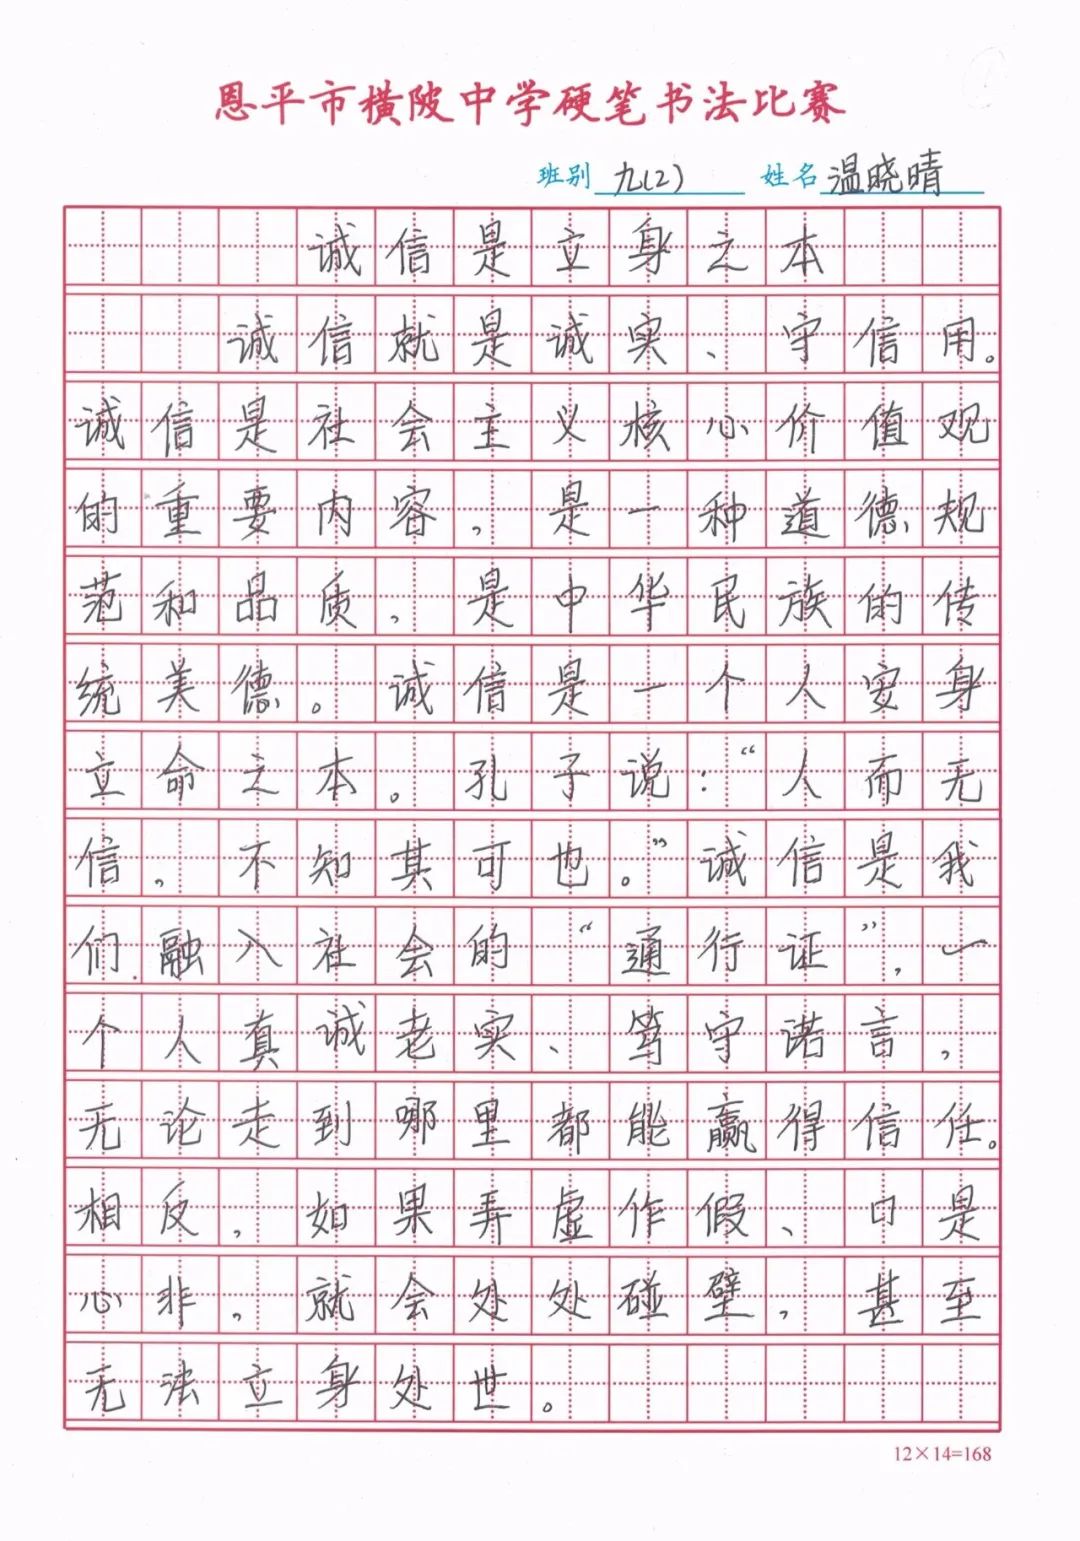 恩平市横陂中学硬笔书法比赛
班别 九(2) 姓名 温晓晴
诚信是立身之本
诚信就是诚实、守信用。
诚信是社会主义核心价值观
的重要内容，是一种道德规
范和品质，是中华民族的传
统美德。诚信是一个人安身
立命之本。孔子说：“人而无
信，不知其可也。”诚信是我
们融入社会的“通行证”，一
个人真诚老实、笃守诺言，
无论走到哪里都能赢得信任。
相反，如果弄虚作假、口是
心非，就会处处碰壁，甚至
无法立身处世。
12×14=168